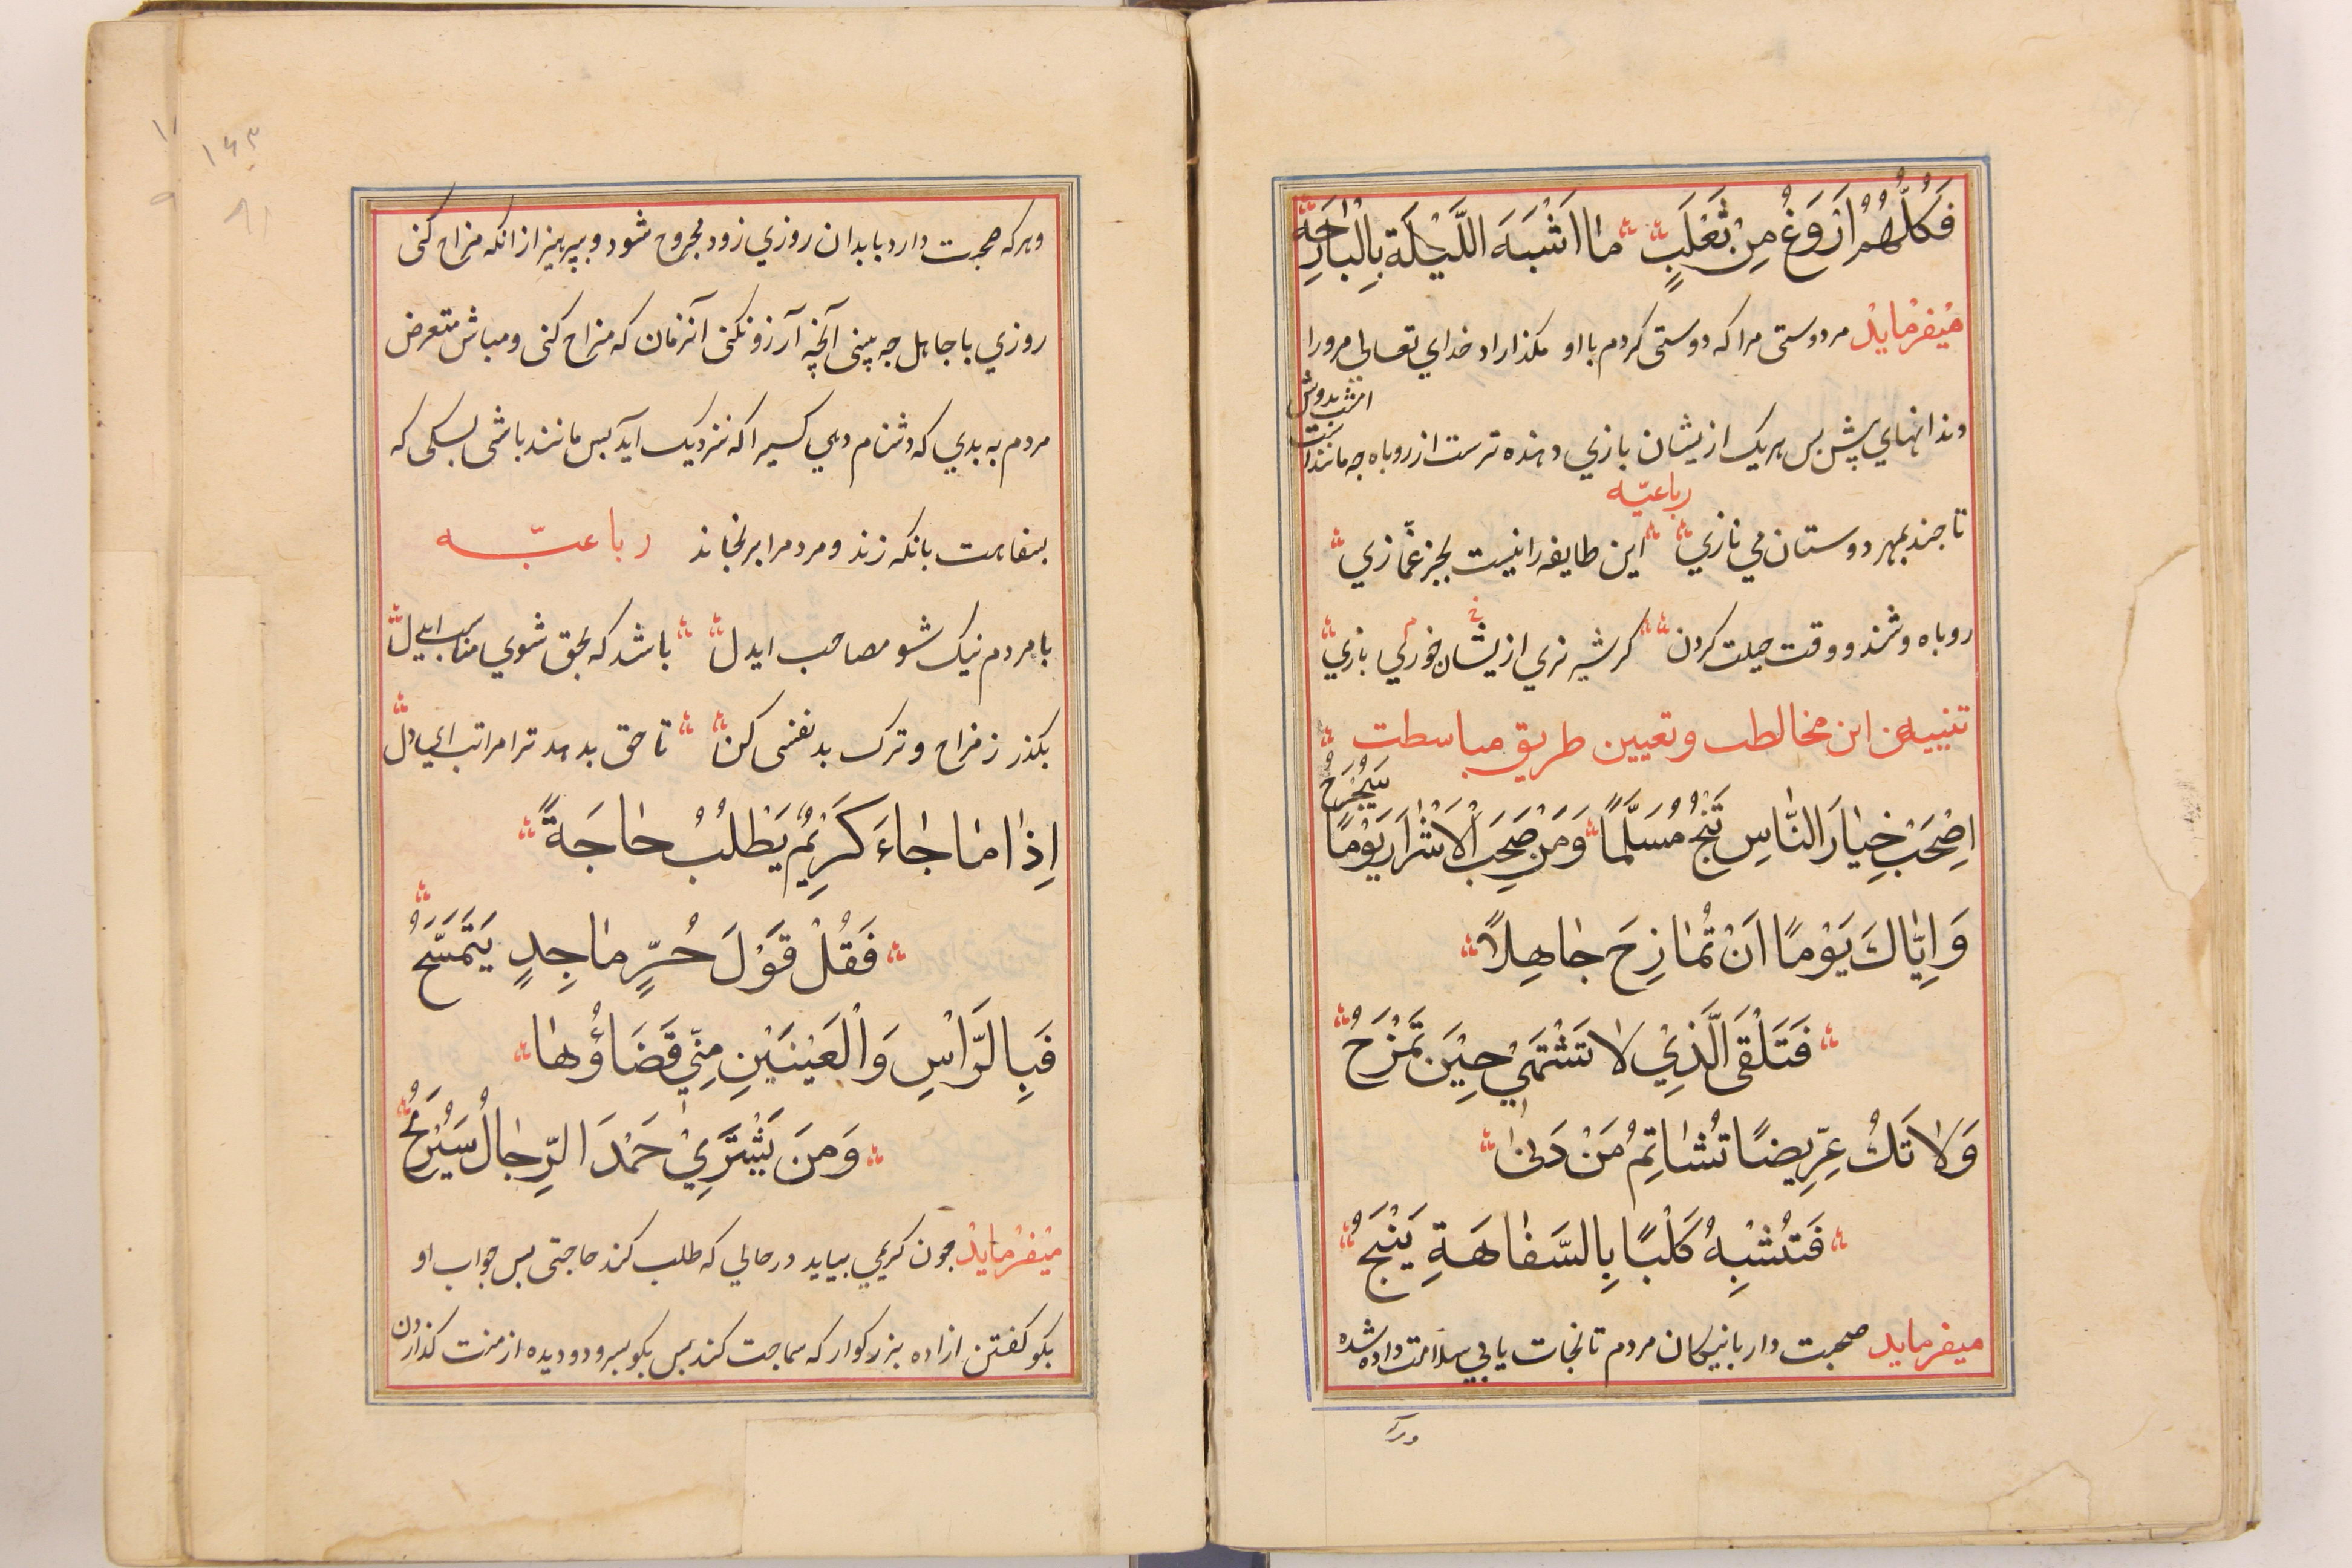 فَكُلُّهُمْ اَرْوَغُ مِنْ ثَعْلَبٍ مٰا اَشْبَهَ اللَّيْلَةَ بِالْبٰارِحَة
ميفرمايد مر دوستى مرا كه دوستى كردم با او مكذاراد خداي تعالى مر ورا
دندانهاي پيش بس هر يك ازيشان بازي دهنده ترست از روباه چه مانندا
ست امشب بدوش
رباعيّه
تا جند بمهر دوستان مي نازي اين طايفه را نيست بجز غمّازي
روباه وشند و وقت حيلت كردن كر شير نري ازيشان خوري بازي
تنبيه من اين مخالطت وتعيين طريق مباسطت
اِصْحَبْ خِيٰارَ النّٰاسِ تَنْجُ مُسَلَّمًا وَمَنْ صَحِبَ الْاَشْرٰارَ يَوْمًا سَيُجْرَحُ
وَاِيّٰاكَ يَوْمًا اَنْ تُمٰازِحَ جٰاهِلاً
فَتَلْقَى الَّذِيْ لٰا تَشْتَهِيْ حِيْنَ تَمْزَحُ
وَلٰا تَكُ عِرِّيضًا تُشٰاتِمُ مَنْ دَنٰى
فَتُشْبِهُ كَلْبًا بِالسَّفٰاهَةِ يَنْبَحُ
ميفرمايد صحبت دار با نيكان مردم تا نجات يابي سلامت داده شده
وهركه
وهركه صحبت دارد با بدان روزي زود مجروح شود وبپرهيز از انكه مزاح كنى
روزي با جاهل چه بينى آنچه آرزو نكنى آنزمان كه مزاح كنى ومباش متعرض
مردم به بدي كه دشنام دهي كسيرا كه نزديك آيد بس مانند باشى بسكى كه
بسفاهت بانكه زند ومردم را برنجاند رباعيّه
با مردم نيك شو مصاحب ايدل باشد كه بحق شوي مناسب ايدل
بكذر ز مزاح وترك بد نفسى كن تا حق بدهد ترا مراتب اي دل
اِذٰا مٰا جٰاءَ كَرِيْمٌ يَطْلُبُ حٰاجَةً
فَقُلْ قَوْلَ حُرٍّ مٰاجِدٍ يَتَسَمَّحُ
فَبِالرَّاْسِ وَالْعَيْنَيْنِ مِنِّي قَضَاؤُهٰا
وَمَنْ يَشْتَرِيْ حَمْدَ الرِّجٰالِ سَيُرْبِحُ
ميفرمايد جون كريمي بيايد در حالي كه طلب كند حاجتى بس جواب او
بكو كفتن ازاده بزركوار كه سماحت كند بس بكو بسر ودو ديده از منست كذاردن
١٤٣